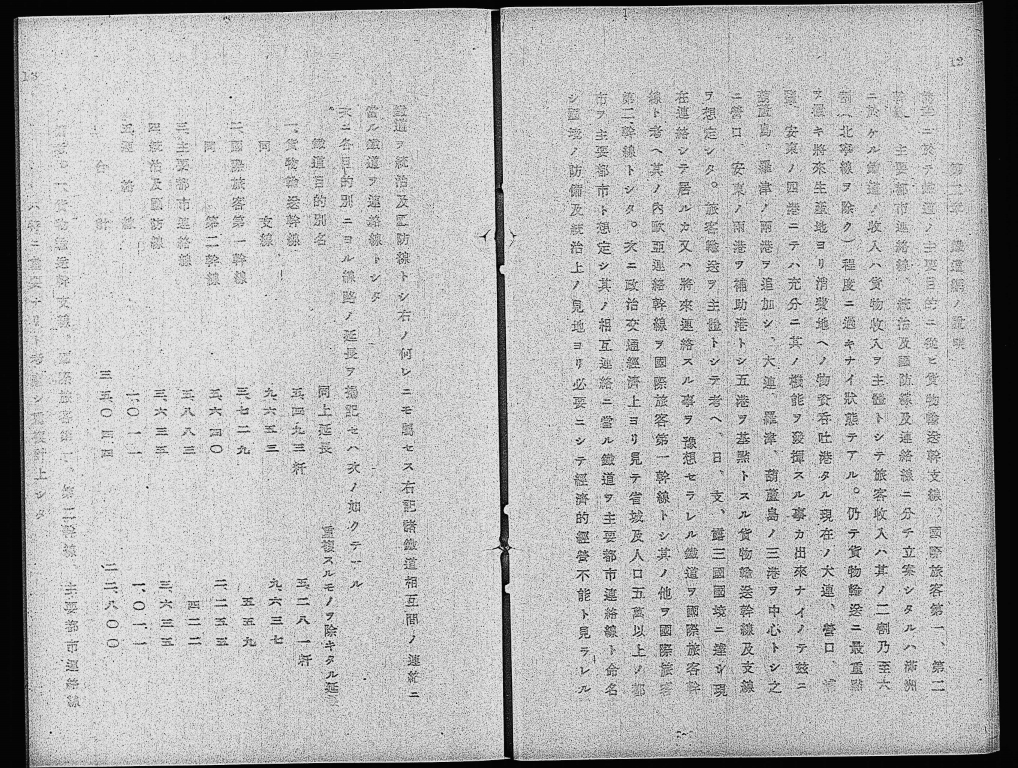 12
第二章 鐵道網ノ說明
ニ於テ鐵道ノ主要目的ニ從ヒ貨物輸送幹支線、國際旅客第一、第二
幹線、主要都市連絡線、統治及國防線及連絡線ニ分テ立案シタルハ滿洲
ニ於ケル鐵道ノ收入ハ貨物收入ヲ主體トシテ旅客收入ハ其ノ二割乃至六
割(北寧線ヲ除ク)程度ニ過キナイ狀態テアル。仍テ貨物輸送ニ最重點
ヲ置キ將來生產地ヨリ消費地ヘノ物資呑吐港タル現在ノ大連、營口、
安東ノ四港ニテハ充分ニ其ノ機能ヲ發揮スル事カ出來ナイノテ茲ニ
葫蘆島、羅津ノ兩港ヲ追加シ、大連、羅津、葫蘆島ノ三港ヲ中心トシ之
ニ營口、安東ノ兩港ヲ補助港トシ五港ヲ基點トスル貨物輸送幹線及支線
ヲ想定シタ。旅客輸送ヲ主體トシテ考ヘ、日、支、露三國國境ニ達シ現
在連絡シテ居ルカ又ハ將來連絡スル事ヲ豫想セラレル鐵道ヲ國際旅客幹
線ト考ヘ其ノ內歐亞連絡幹線ヲ國際旅客第一幹線トシ其ノ他ヲ國際旅客
第二幹線トシタ。次ニ政治交通經濟上ヨリ見テ省城及人口五萬以上ノ都
市ヲ主要都市ト想定シ其ノ相互連絡ニ當ル鐵道ヲ主要都市連絡線ト命名
シ邊境ノ防備及統治上ノ見地ヨリ必要ニシテ經濟的經營不能ト見ラレル
13
鐵道ヲ統治及國防線トシ右ノ何レニモ屬セス右記諸鐵道相互間ノ連絡ニ
當ル鐵道ヲ連絡線トシタ
次ニ各目的別ニヨル線路ノ延長ヲ揭記セハ次ノ如クテアル
鐵道目的別名 同上延長 重複スルモノヲ除キタル延長
一、貨物輸送幹線 五、四九三粁 五、二八一粁
同 支線 九、六五三 九、六三七
二、國際旅客第一幹線 三、七二九 五五九
同 第二幹線 三、六四〇 二、二五五
三、主要都市連絡線 三、八八三 四二二
四、統治及國防線 三、六三三 三、六三五
五、連絡線 一、〇一一 一、〇一一
合計 三五、〇四四 二二、八〇〇
貨物輸送幹支線、國際旅客第一、第二幹線、主要都市連絡線
ハ特ニ重要ナリト考慮シ重複計上シタ